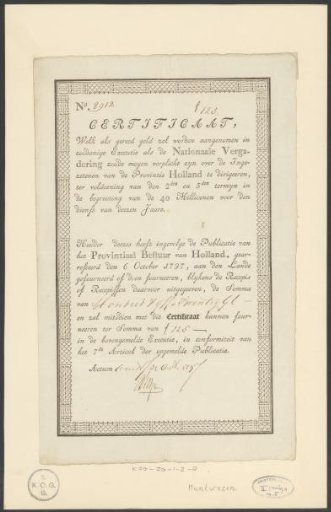 No. 2912
ƒ 125
CERTIFICAAT,
Welk als gereed geld zal worden aangenomen in
zoodanige Executie als de Nationaale Verga-
dering zoude mogen verplicht zyn over de Inge-
zetenen van de Provintie Holland te dirigeeren,
ter voldoening van den 2den en 3den termyn in
de begrooting van de 40 Millioenen voor den
dienst van deezen Jaare.
Houder dezes heeft ingevolge de Publicatie van
het Provintiaal Bestuur van Holland, gear-
resteerd den 6 October 1797, aan den Lande
gefourneerd of doen fourneeren, blykens de Recepis
of Recepissen daarvoor uitgegeeven, de Somma
van Hondert Vyf & Twintig Gl —
en zal mitsdien met dit Certificaat kunnen four-
neeren ter Somma van ƒ 125 —
in de bovengemelde Executie, in conformiteit van
het 7de Articul der gemelde Publicatie.
Actum
K.O.G.